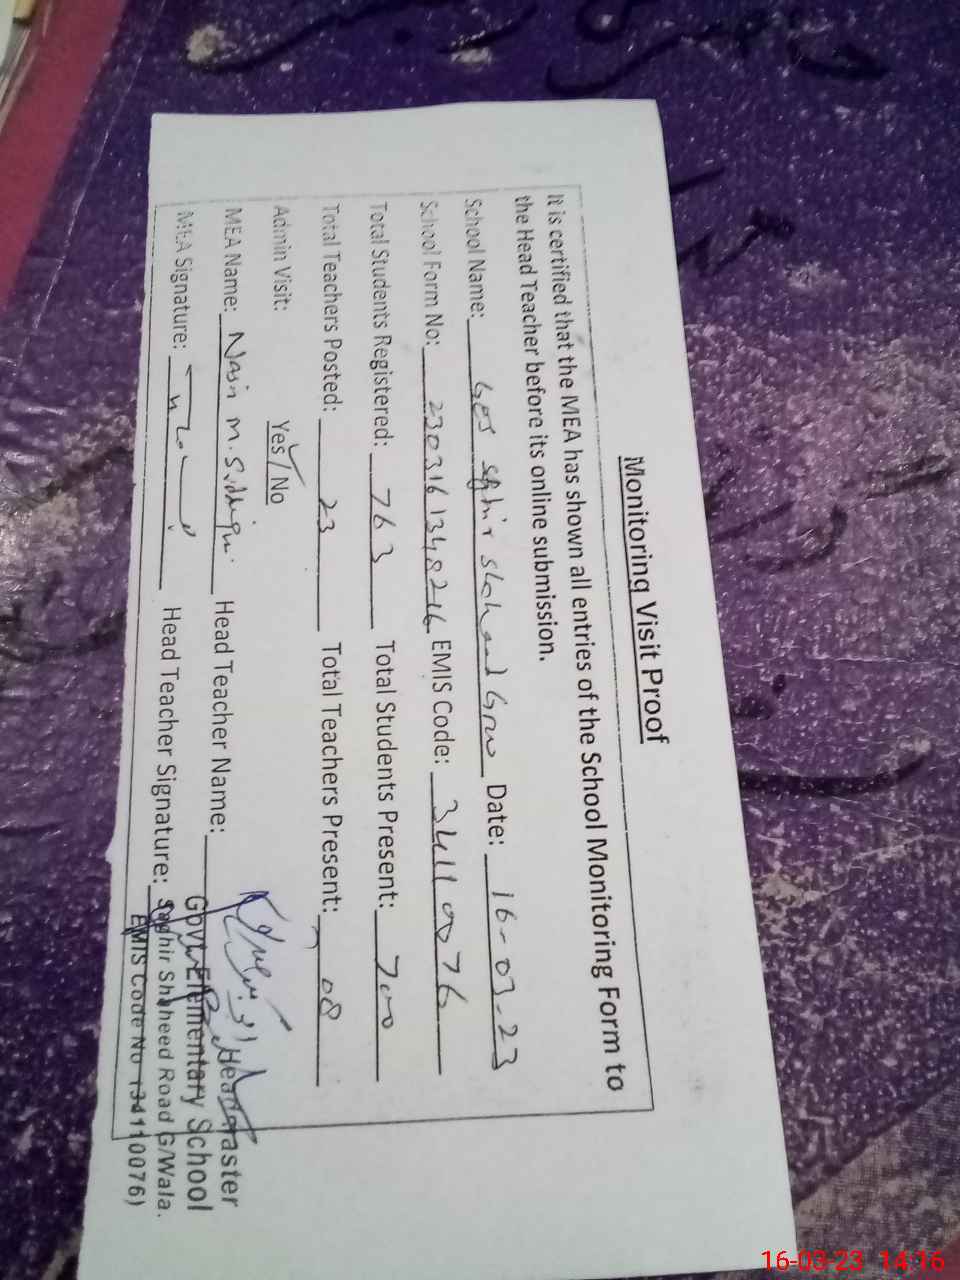 Monitoring Visit Proof
It is certified that the MEA has shown all entries of the School Monitoring Form to
the Head Teacher before its online submission.
School Name: GES Saghir Shaheed Grw Date: 16-03-23
School Form No: EMIS Code: 34110076
Total Students Registered: 763 Total Students Present: 700
Total Teachers Posted: 23 Total Teachers Present: 08
Admin Visit: Yes / No
MEA Name: Nasir M. Siddiqui Head Teacher Name:
MEA Signature: Head Teacher Signature:
Headmaster
Govt. Elementary School
Saghir Shaheed Road G/Wala.
EMIS Code No 134110076)
16-03-23 14:16